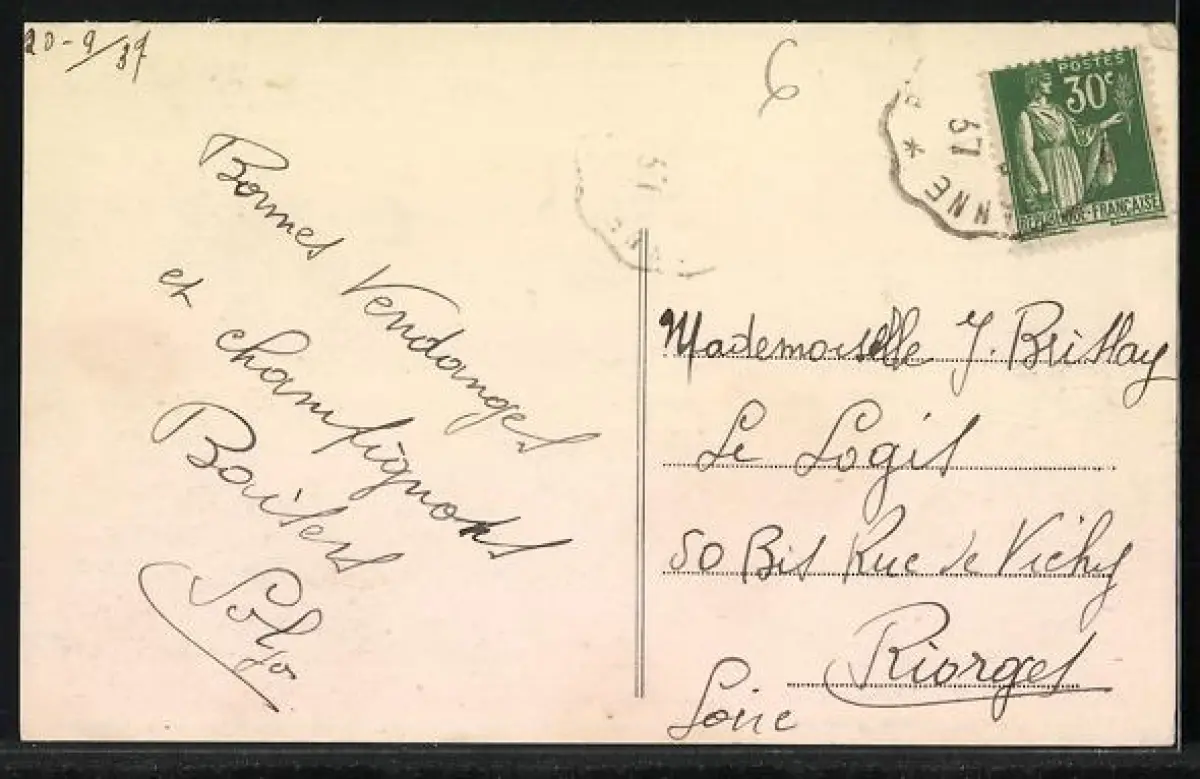 20-9/37
6
POSTES
30c
RÉPUBLIQUE-FRANÇAISE
37
ANNE *
37
NNE
Bonnes Vendanges
et champignons
Baisers
Mademoiselle J. Brissay
Le Logis
50 Bis Rue de Vichy
Riorges
Loire